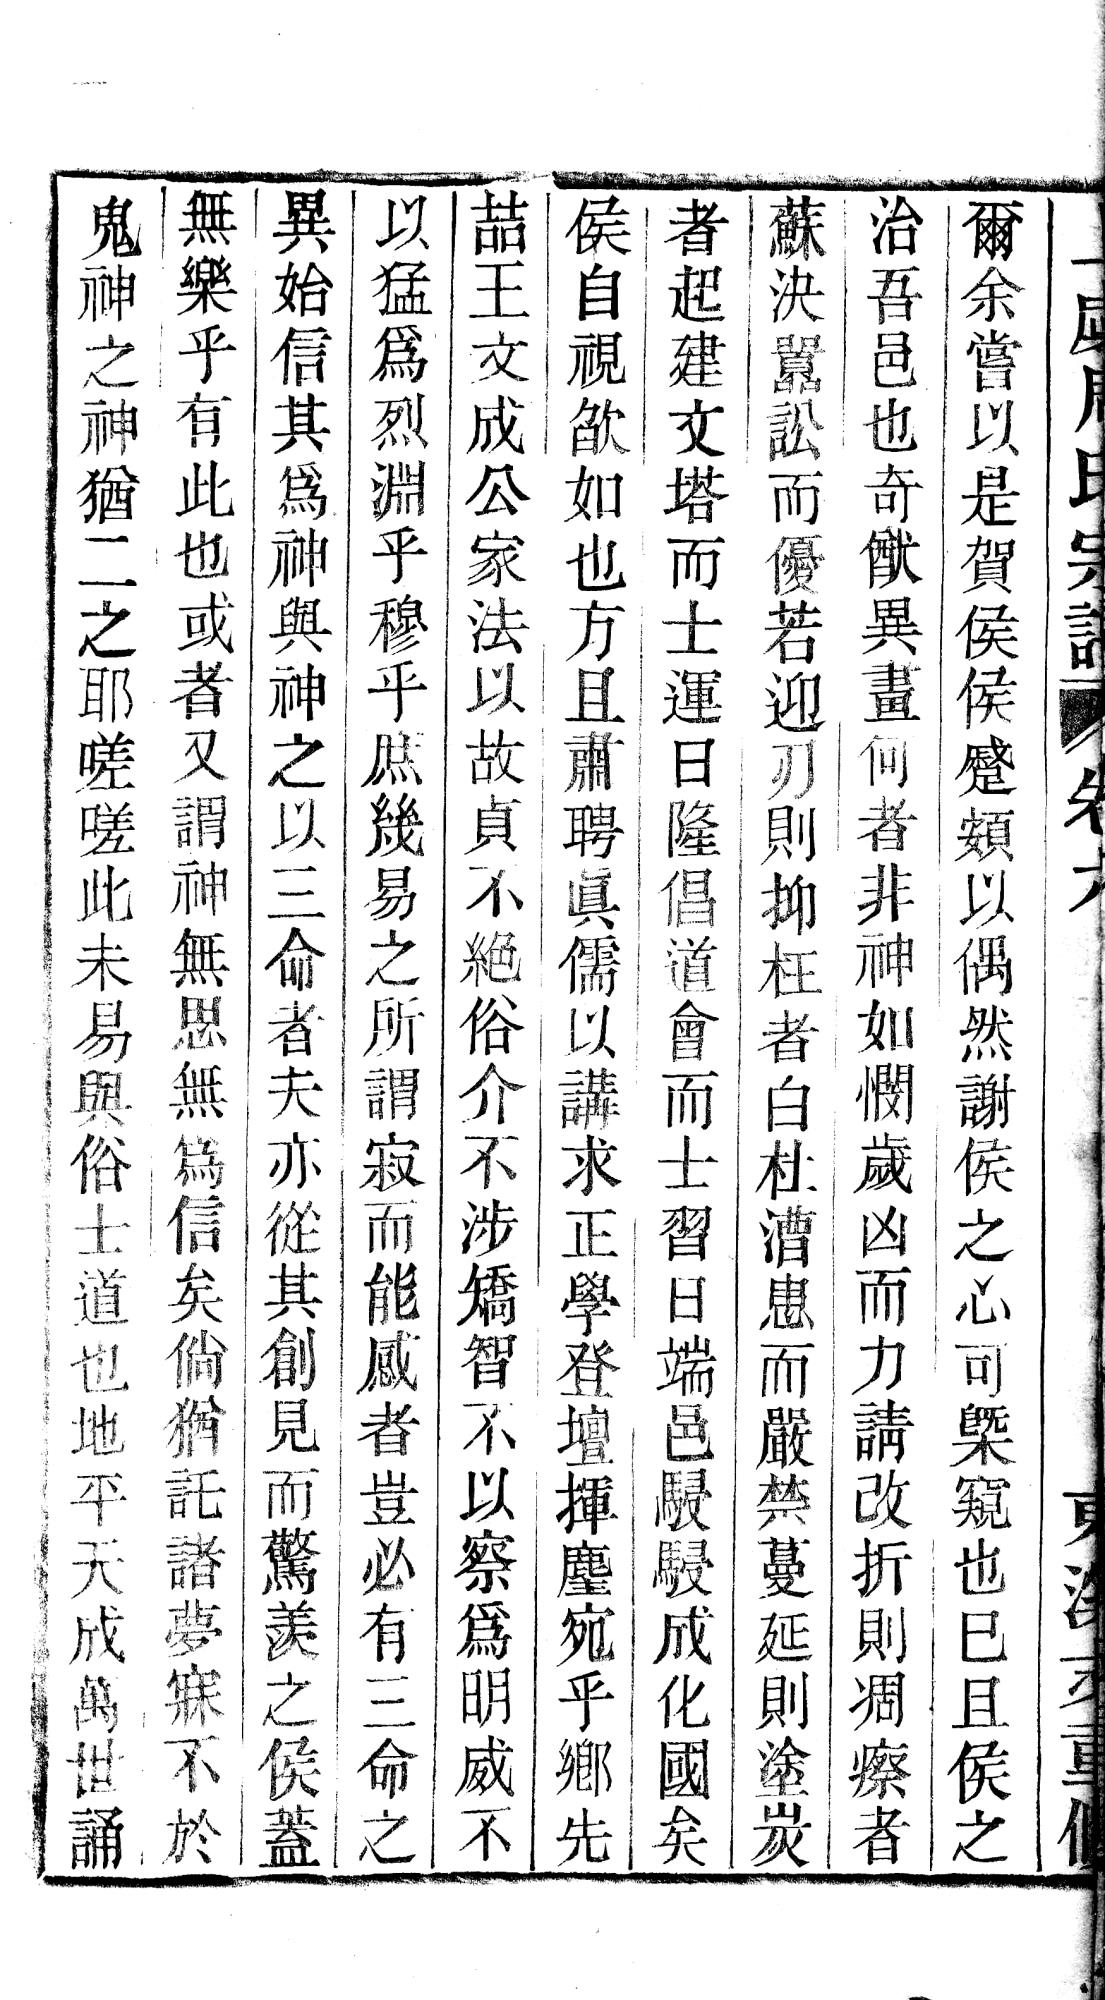 爾余嘗以是賀侯侯蹙頞以偶然謝侯之心可槩窺也巳且侯之
治吾邑也奇猷異畫何者非神如憫歲凶而力請改折則凋瘵者
蘇決嚚訟而優若迎刃則抑枉者白杜漕患而嚴禁蔓延則塗炭
者起建文塔而士運日隆倡道會而士習日端邑駸駸成化國矣
侯自視欿如也方且肅聘眞儒以講求正學登壇揮麈宛乎鄉先
喆王文成公家法以故貞不絕俗介不涉矯智不以察爲明威不
以猛爲烈淵乎穆乎庶幾易之所謂寂而能感者豈必有三命之
異始信其爲神與神之以三命者夫亦從其創見而驚羨之侯蓋
無樂乎有此也或者又謂神無思無爲信矣倘猶託諸夢寐不於
鬼神之神猶二之耶嗟嗟此未易與俗士道也地平天成萬世誦
氏宗譜 卷六